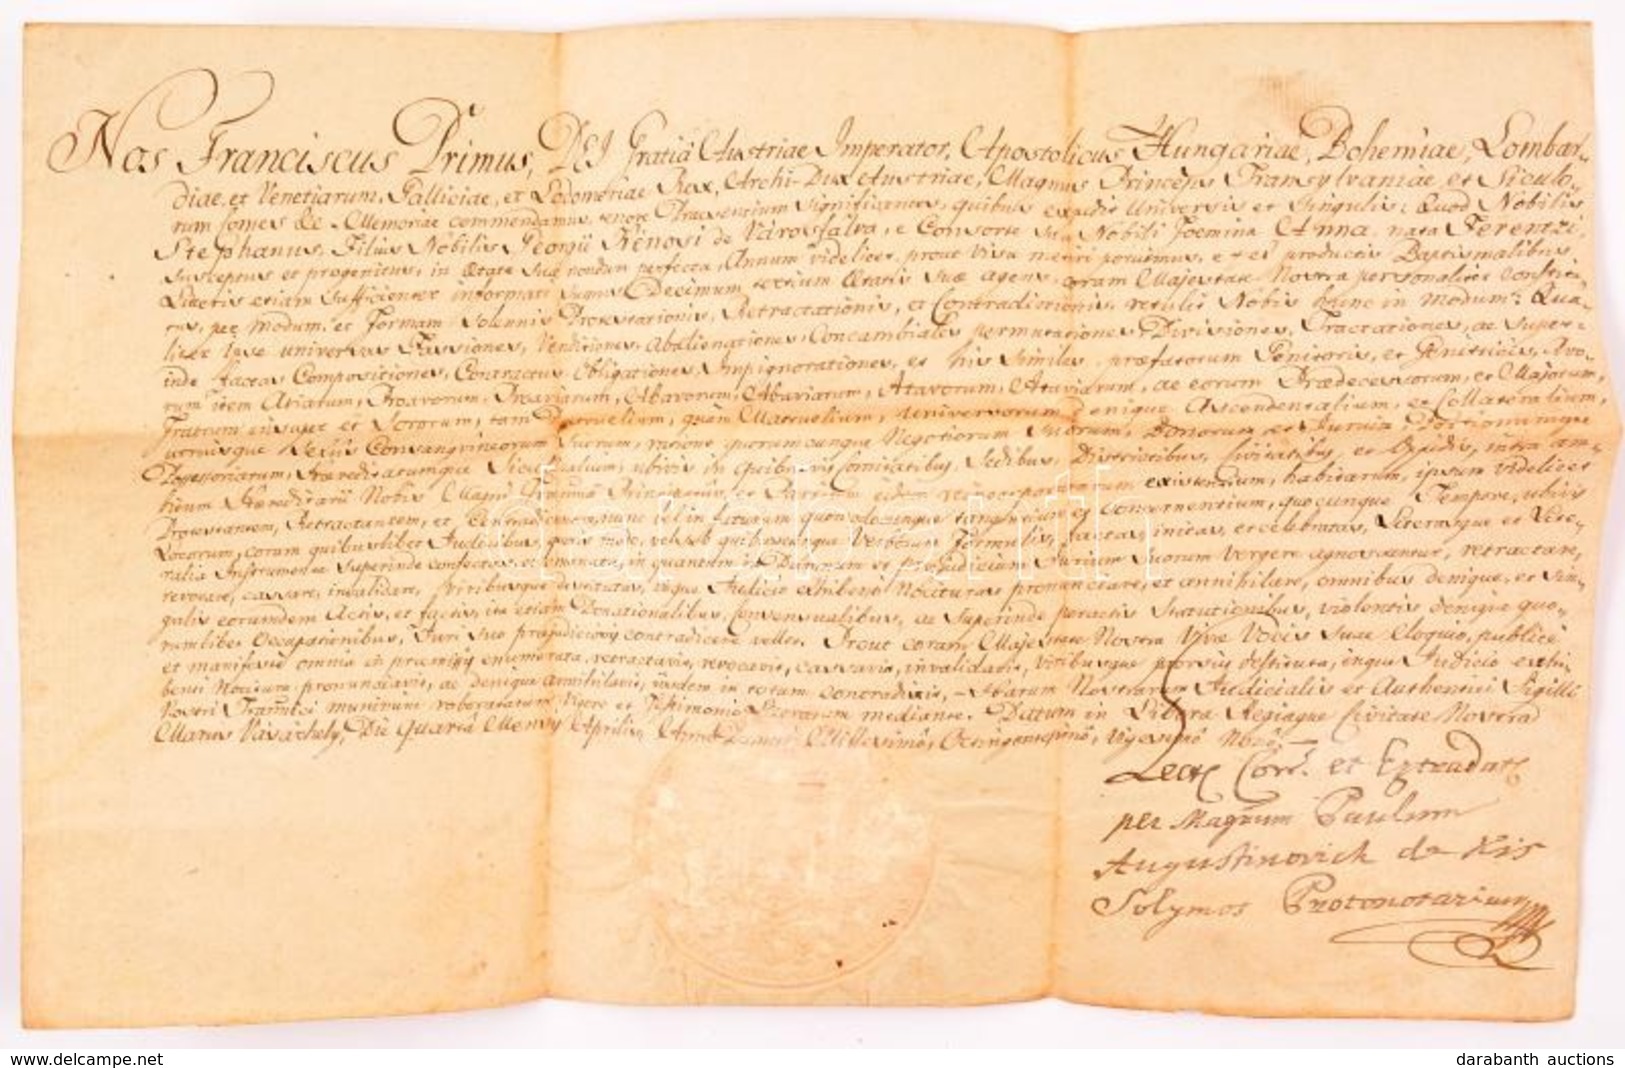 Nos Franciscus Primus, DEI Gratiâ Austriae Imperator, Apostolicus Hungariae, Bohemiae, Lombar-
diae, et Venetiarum, Galliciae, et Lodomeriae Rex, Archi-Dux Austriae, Magnus Princeps Transylvaniae, et Siculo-
rum Comes &c. Memoriae commendamus, tenore Praesentium significantes, quibus expedit Universis et Singulis: Quod Nobilis
Stephanus, Filius Nobilis Georgii Rénosi de Városfalva, e Consorte Sua Nobili Foemina Anna nata Ferentzi,
susceptus et progenitus, in Aetate Sua nondum perfecta, Annum videlicet, prout visu metiri potuimus, et ex productis Baptismalibus
Literis etiam sufficienter informati sumus Decimum tertium Aetatis Suae agens, coram Majestate Nostra personaliter constitu-
tus, per modum, et Formam solennis Protestationis, Retractationis, et Contradictionis, retulit Nobis hunc in Modum: Qua-
liter Ipse universas Fassiones, Venditiones, Abalienationes, Concambiales permutationes, Divisiones, Tractationes, ac super-
inde factas Compositiones, Contractus Obligationes, Impignorationes, et his similes praefatorum Genitoris, et Genitricis, Avo-
rum item Aviarum, Proavorum, Proaviarum, Abavorum, Abaviarum, Atavorum, Ataviarum, ac eorum Praedecessorum, et Majorum,
Fratrum insuper et Sororum, tam Patruelium, quàm Matruelium, Universorum denique Ascendentalium, et Collateralium,
utriusque Sexus Consangvineorum Suorum, ratione quorumcunque Negotiorum Suorum, Bonorum et Jurium Portionumque
Possessoriarum, Haereditatumque Siculicalium, ubivis in quibusvis Comitatibus, Sedibus, Districtibus, Civitatibus, et Oppidis, intra am-
bitum Haereditarii Nobis Magni Principatus, et Partium eidem reincorporatarum existentium, habitarum, ipsum videlicet
Protestantem, Retractantem, et Contradicentem, nunc vel in futurum quomodocunque tangentium et concernentium, quocunque Tempore, ubivis
Locorum, coram quibuslibet Judicibus, quovis modo, vel sub quibuscunque Verborum Formulis, factas, initas, et celebratas, Literasque et Lite-
ralia Instrumenta superinde confectas, et emanata, in quantum in Damnum et praejudicium Jurium Suorum vergere agnoscuntur, retractare,
revocare, cassare, invalidare, viribusque destitutas, inque Judicio exhibenti Nocituras pronunciare, et annihilare, omnibus denique, et sin-
gulis eorumdem Actis, et factis, ita etiam Donationalibus, Consensualibus, ac superinde peractis Statutionibus, violentis denique quo-
rumlibet Occupationibus, Juri Suo praejudiciosis contradicere vellet. Prout coram Majestate Nostra Vivae Vocis suae Eloquio, publicè
et manifestè omnia in praemissis enumerata, retractavit, revocavit, cassavit, invalidavit, Viribusque prorsus destituta, inque Judicio exhi-
benti Nocitura pronunciavit, ac denique annihilavit, iisdem in totum contradixit, Harum Nostrarum Judicialis et Authentici Sigilli
Nostri munimini roboratarum Vigore et Testimonio Literarum mediante. Datum in Libera Regiaque Civitate Nostra
Maros Vásárhely, Die Quartâ Mensis Aprilis, Anno Domini Millesimô, Octingentesimô, Vigesimô Nonô.
Lect Corr. et Extradat
per Magrum Paulum
Augustinovich de Kis
Solymos Protonotarium
darabanth
www.delcampe.net
darabanth auctions